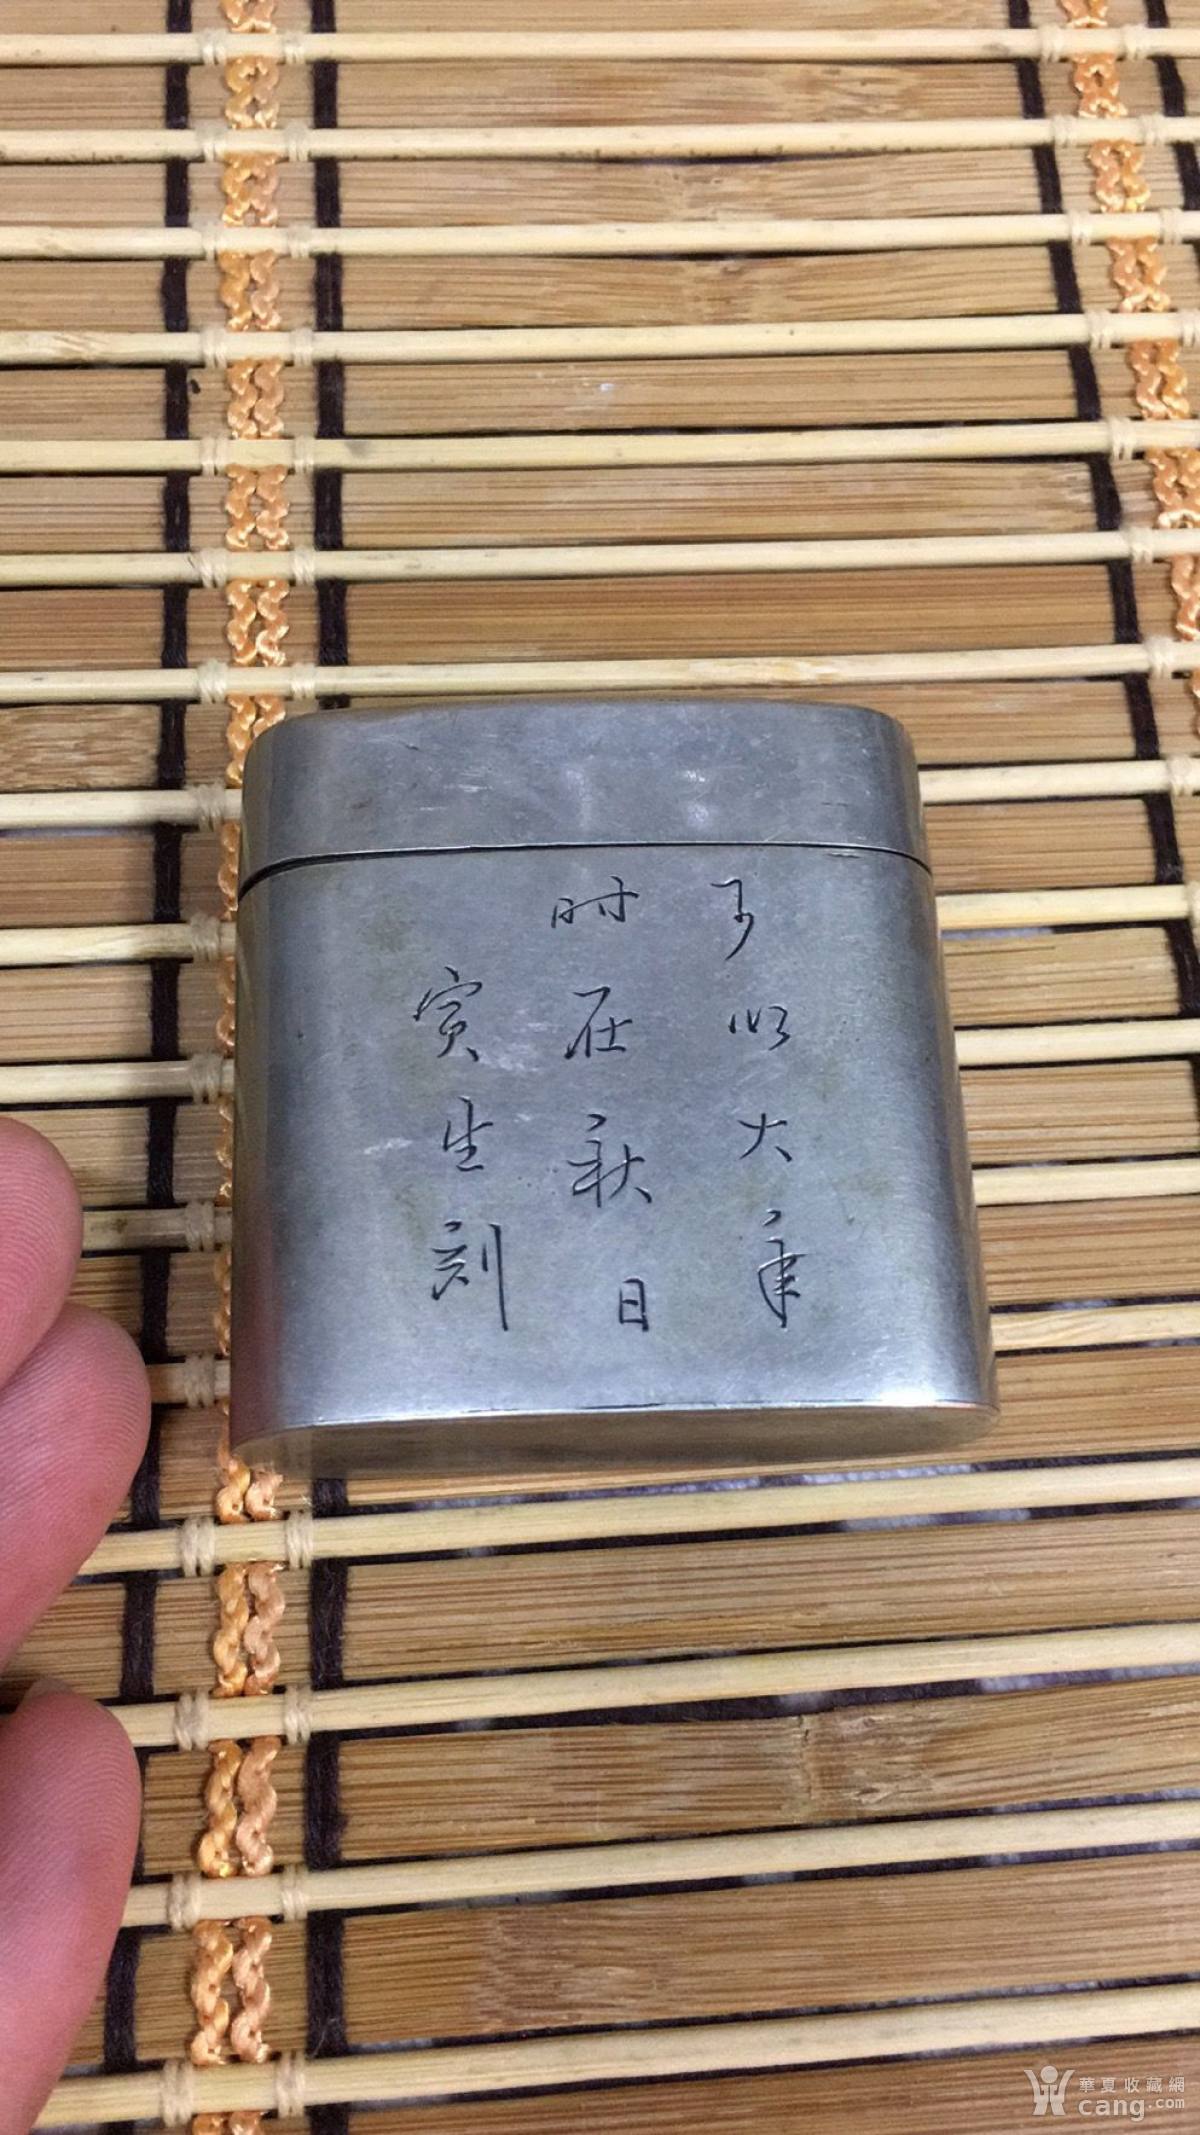 予以大年
时在秋日
寅生刻
華夏收藏網
cang.com